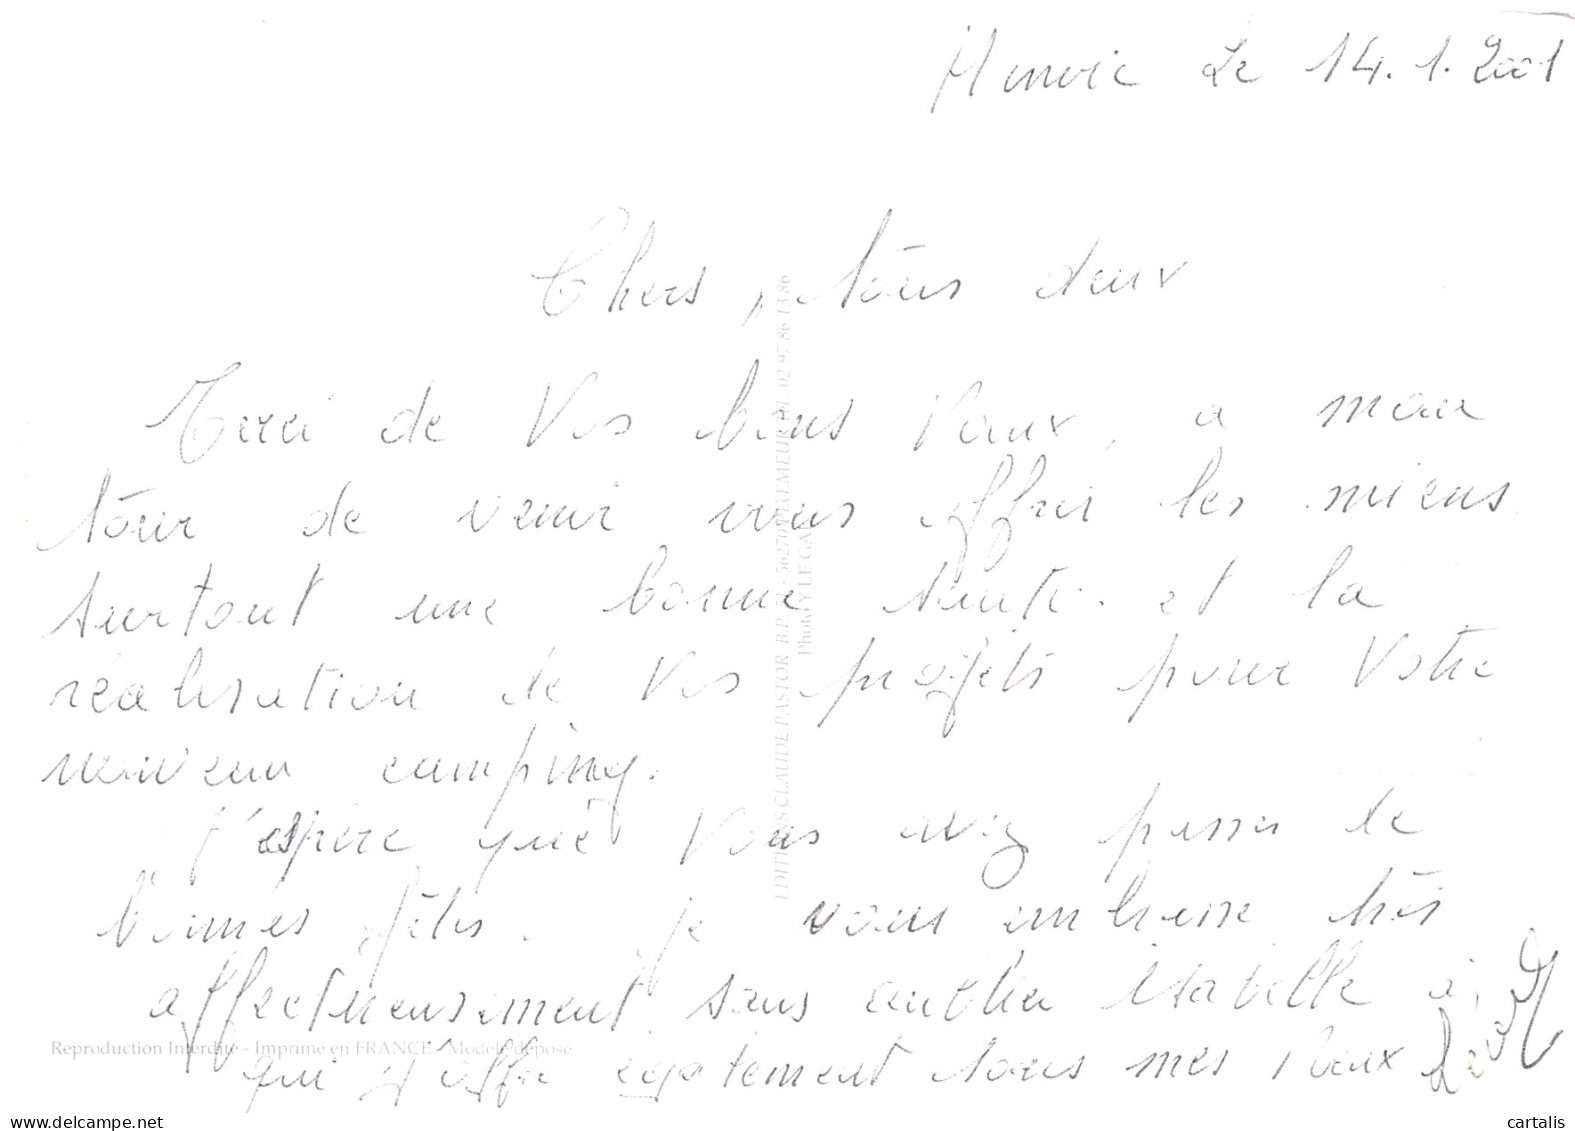 Henvic Le 14.1.2001
Chers, tous deux
Merci de Vos bons Vœux, a mon
tour de venir vous offrir les miens
surtout une bonne santé. et la
réalisation de Vos projets pour Votre
nouveau camping.
J'espère que Vous avez passer de
bonnes fêtes. je vous embrasse très
affectueusement sans oublier Isabelle à
qui j'offre egalement tous mes Vœux
EDITIONS CLAUDE PASTOR B.P. 56270 PLŒMEUR Tél. 02 97 86 13 86
Photo Y. LE GAL
Reproduction Interdite - Imprimé en FRANCE - Modèle déposé
cartalis.fr
delcampe.net